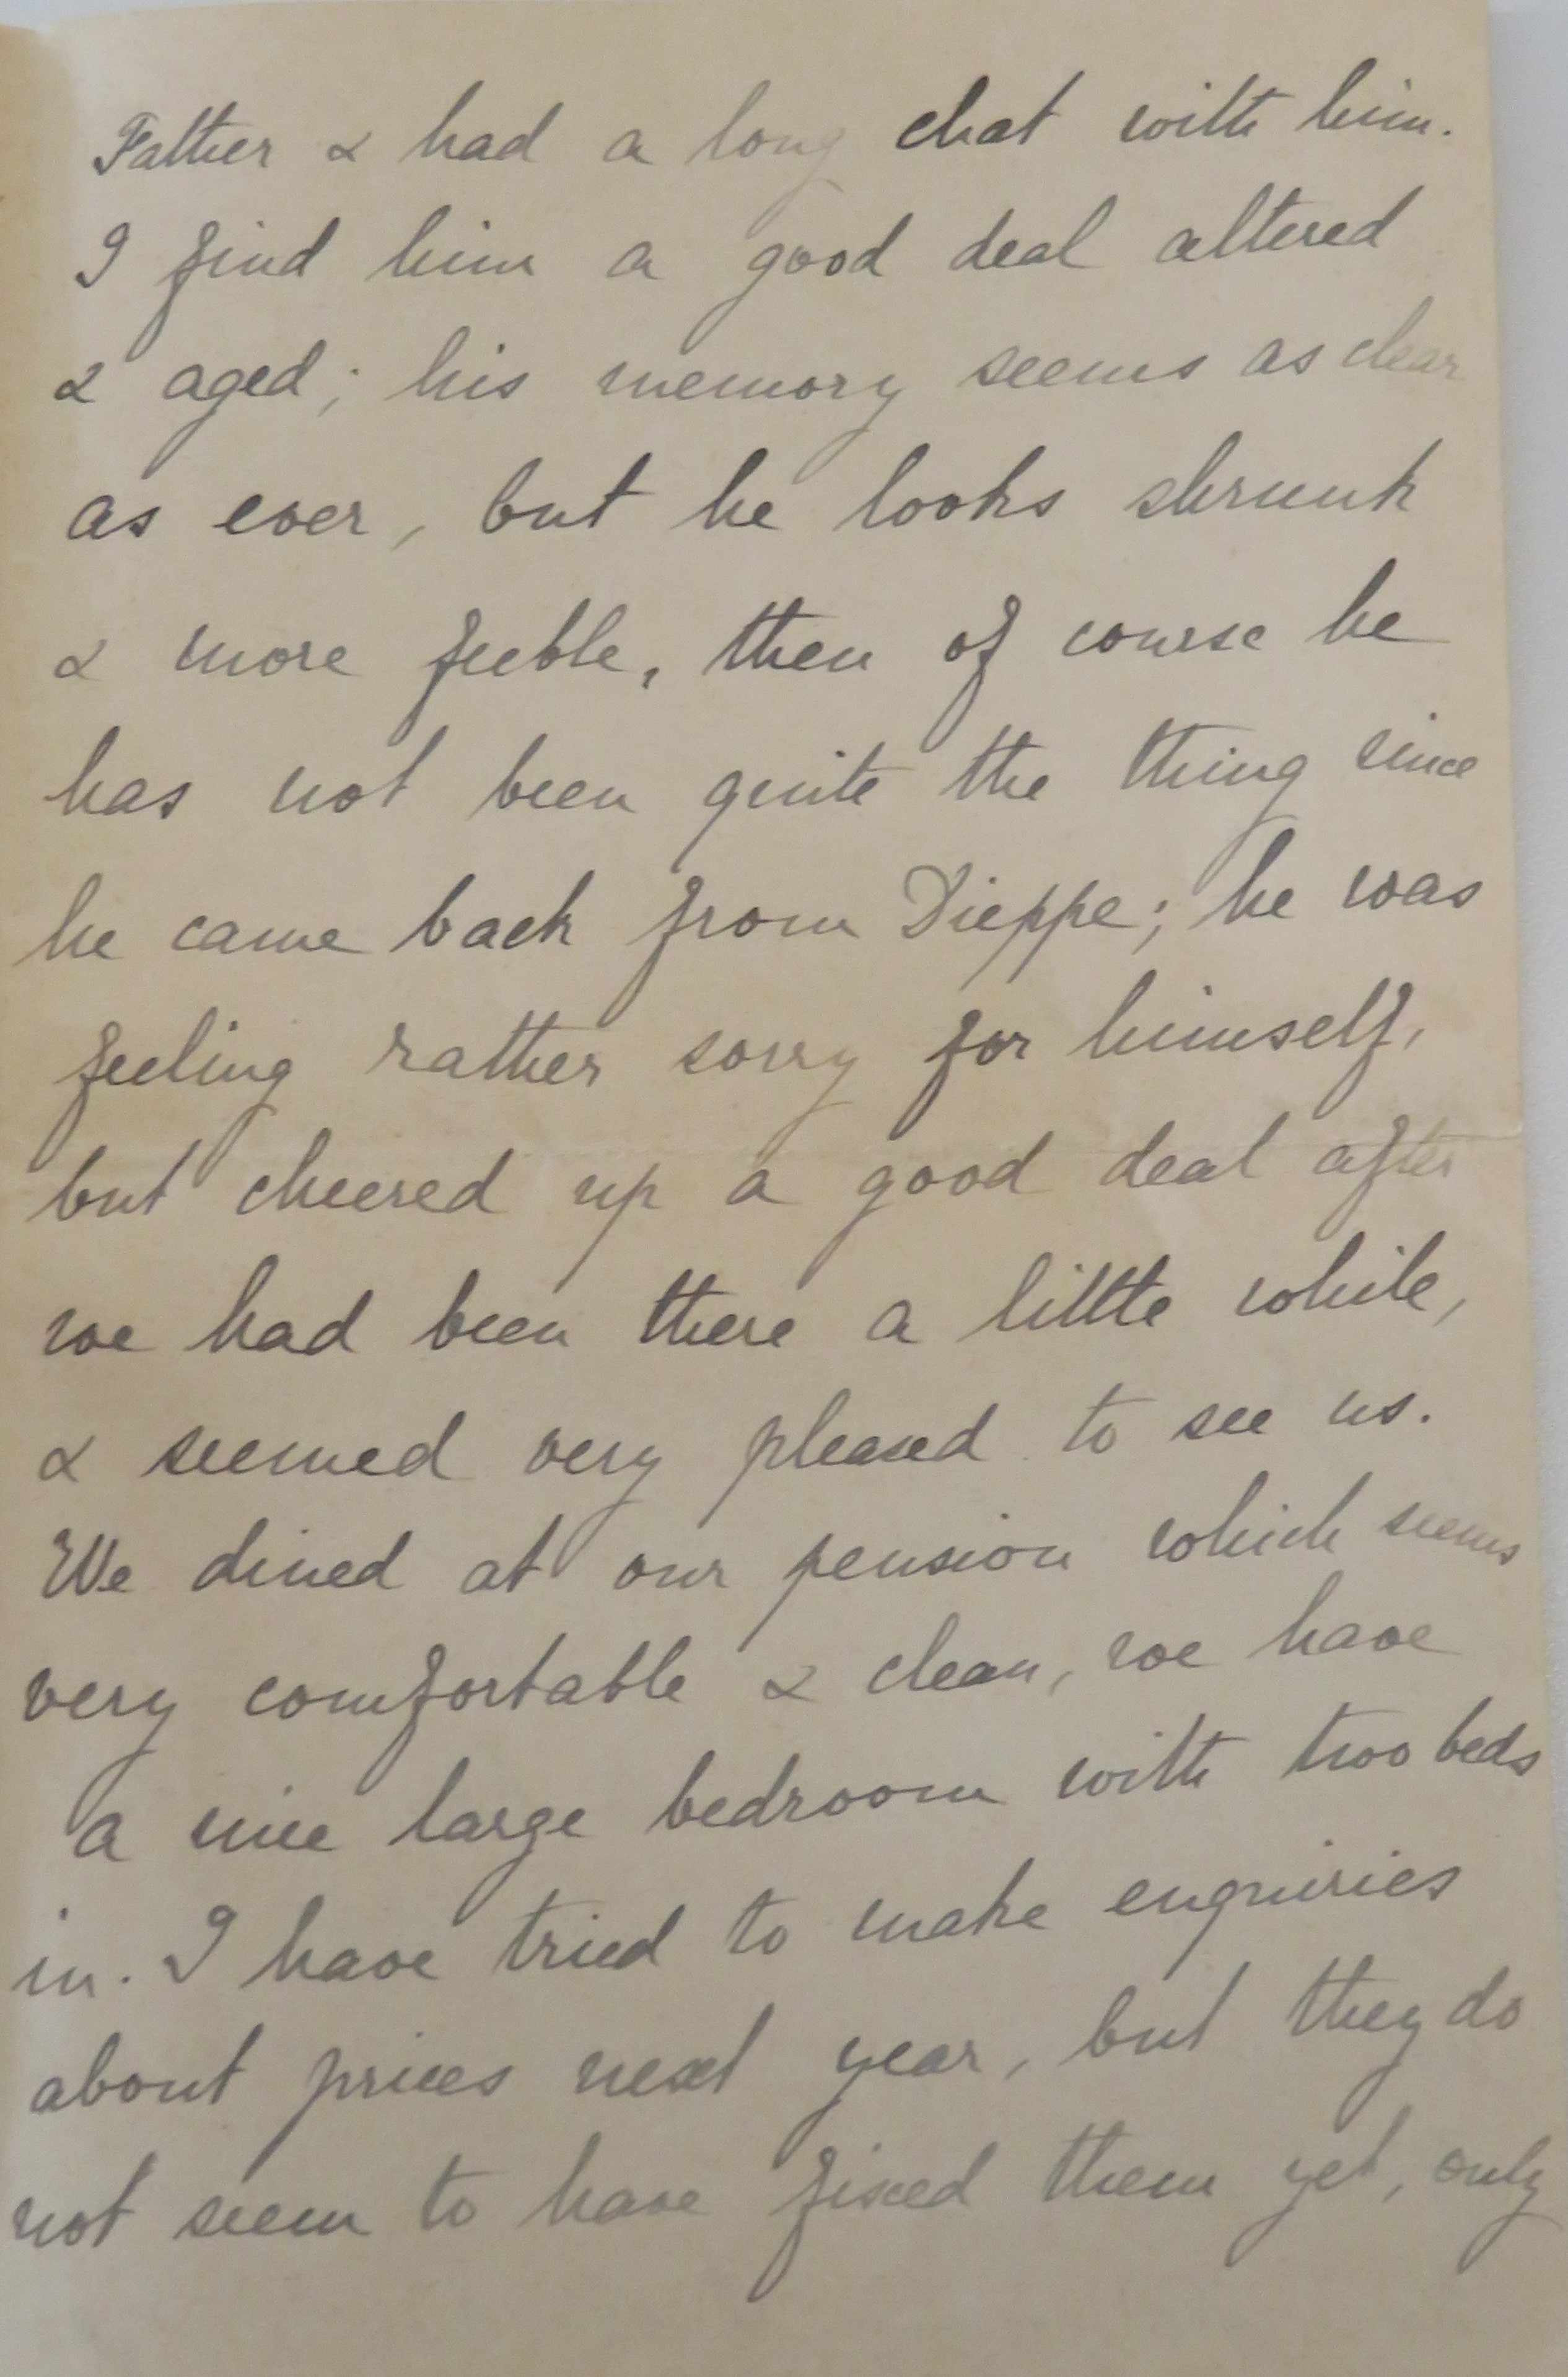 Father & had a long chat with him.
I find him a good deal altered
& aged; his memory seems as clear
as ever, but he looks shrunk
& more feeble, then of course he
has not been quite the thing since
he came back from Dieppe; he was
feeling rather sorry for himself,
but cheered up a good deal after
we had been there a little while,
& seemed very pleased to see us.
We dined at our pension which seems
very comfortable & clean, we have
a nice large bedroom with two beds
in. I have tried to make enquiries
about prices next year, but they do
not seem to have fixed them yet, only